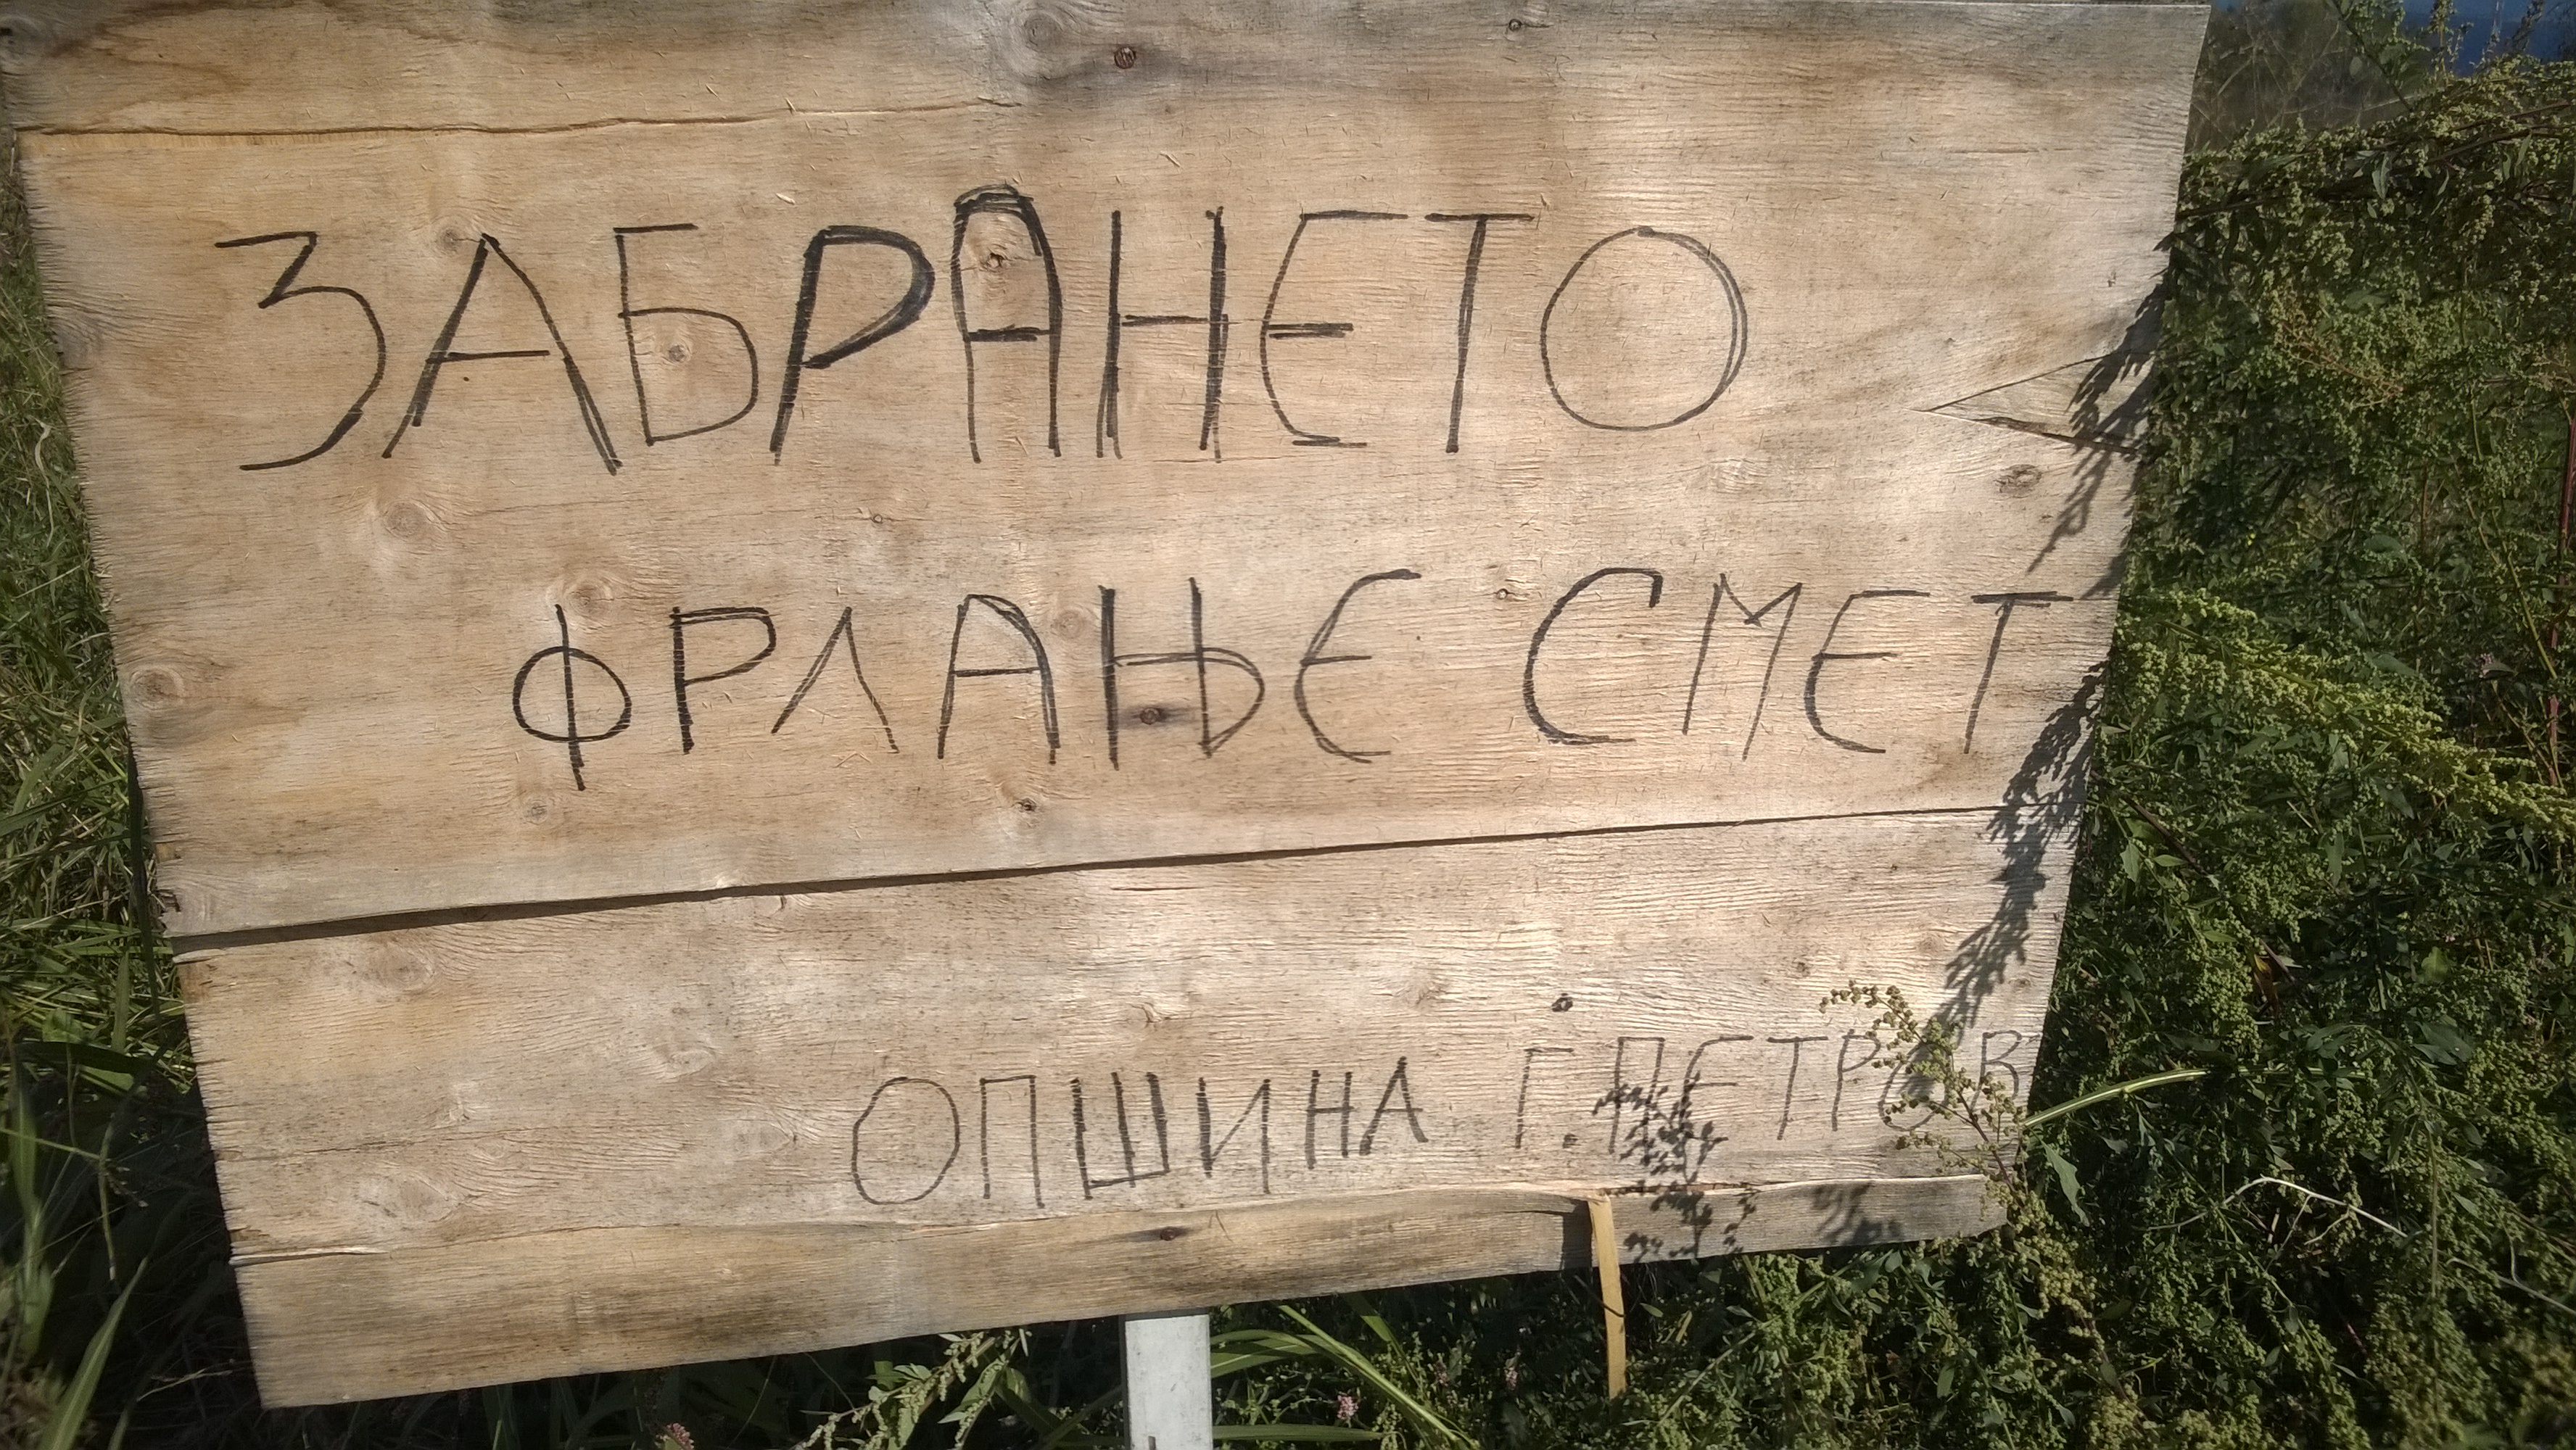 ЗАБРАНЕТО
ФРЛАЊЕ СМЕТ
ОПШИНА Г.ПЕТРОВ